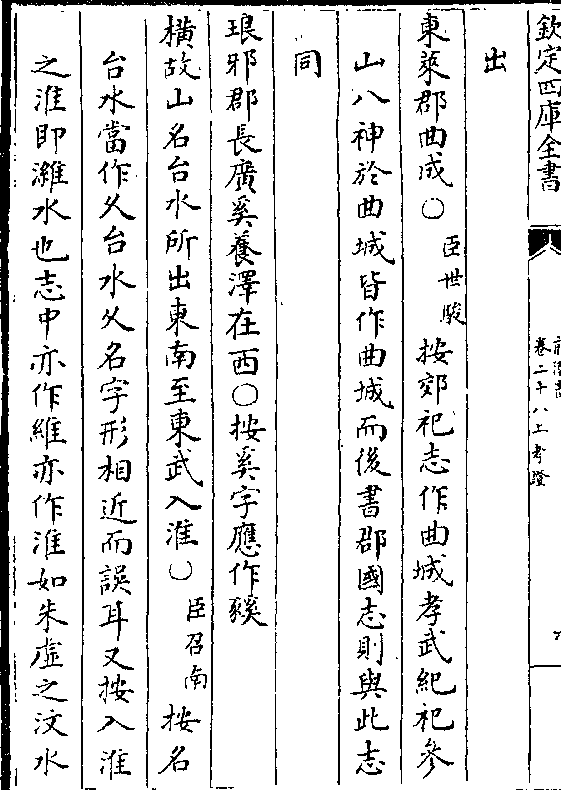 欽定四庫全書
前漢書
卷二十八上考證
出
東萊郡曲成○臣世駿按郊祀志作曲城孝武紀祀參
山八神於曲城皆作曲城而後書郡國志則與此志
同
琅邪郡長廣奚養澤在西○按奚字應作豯
橫故山名台水所出東南至東武入淮○臣召南按名
台水當作久台水久名字形相近而誤耳又按入淮
之淮即濰水也志中亦作維亦作淮如朱虛之汶水